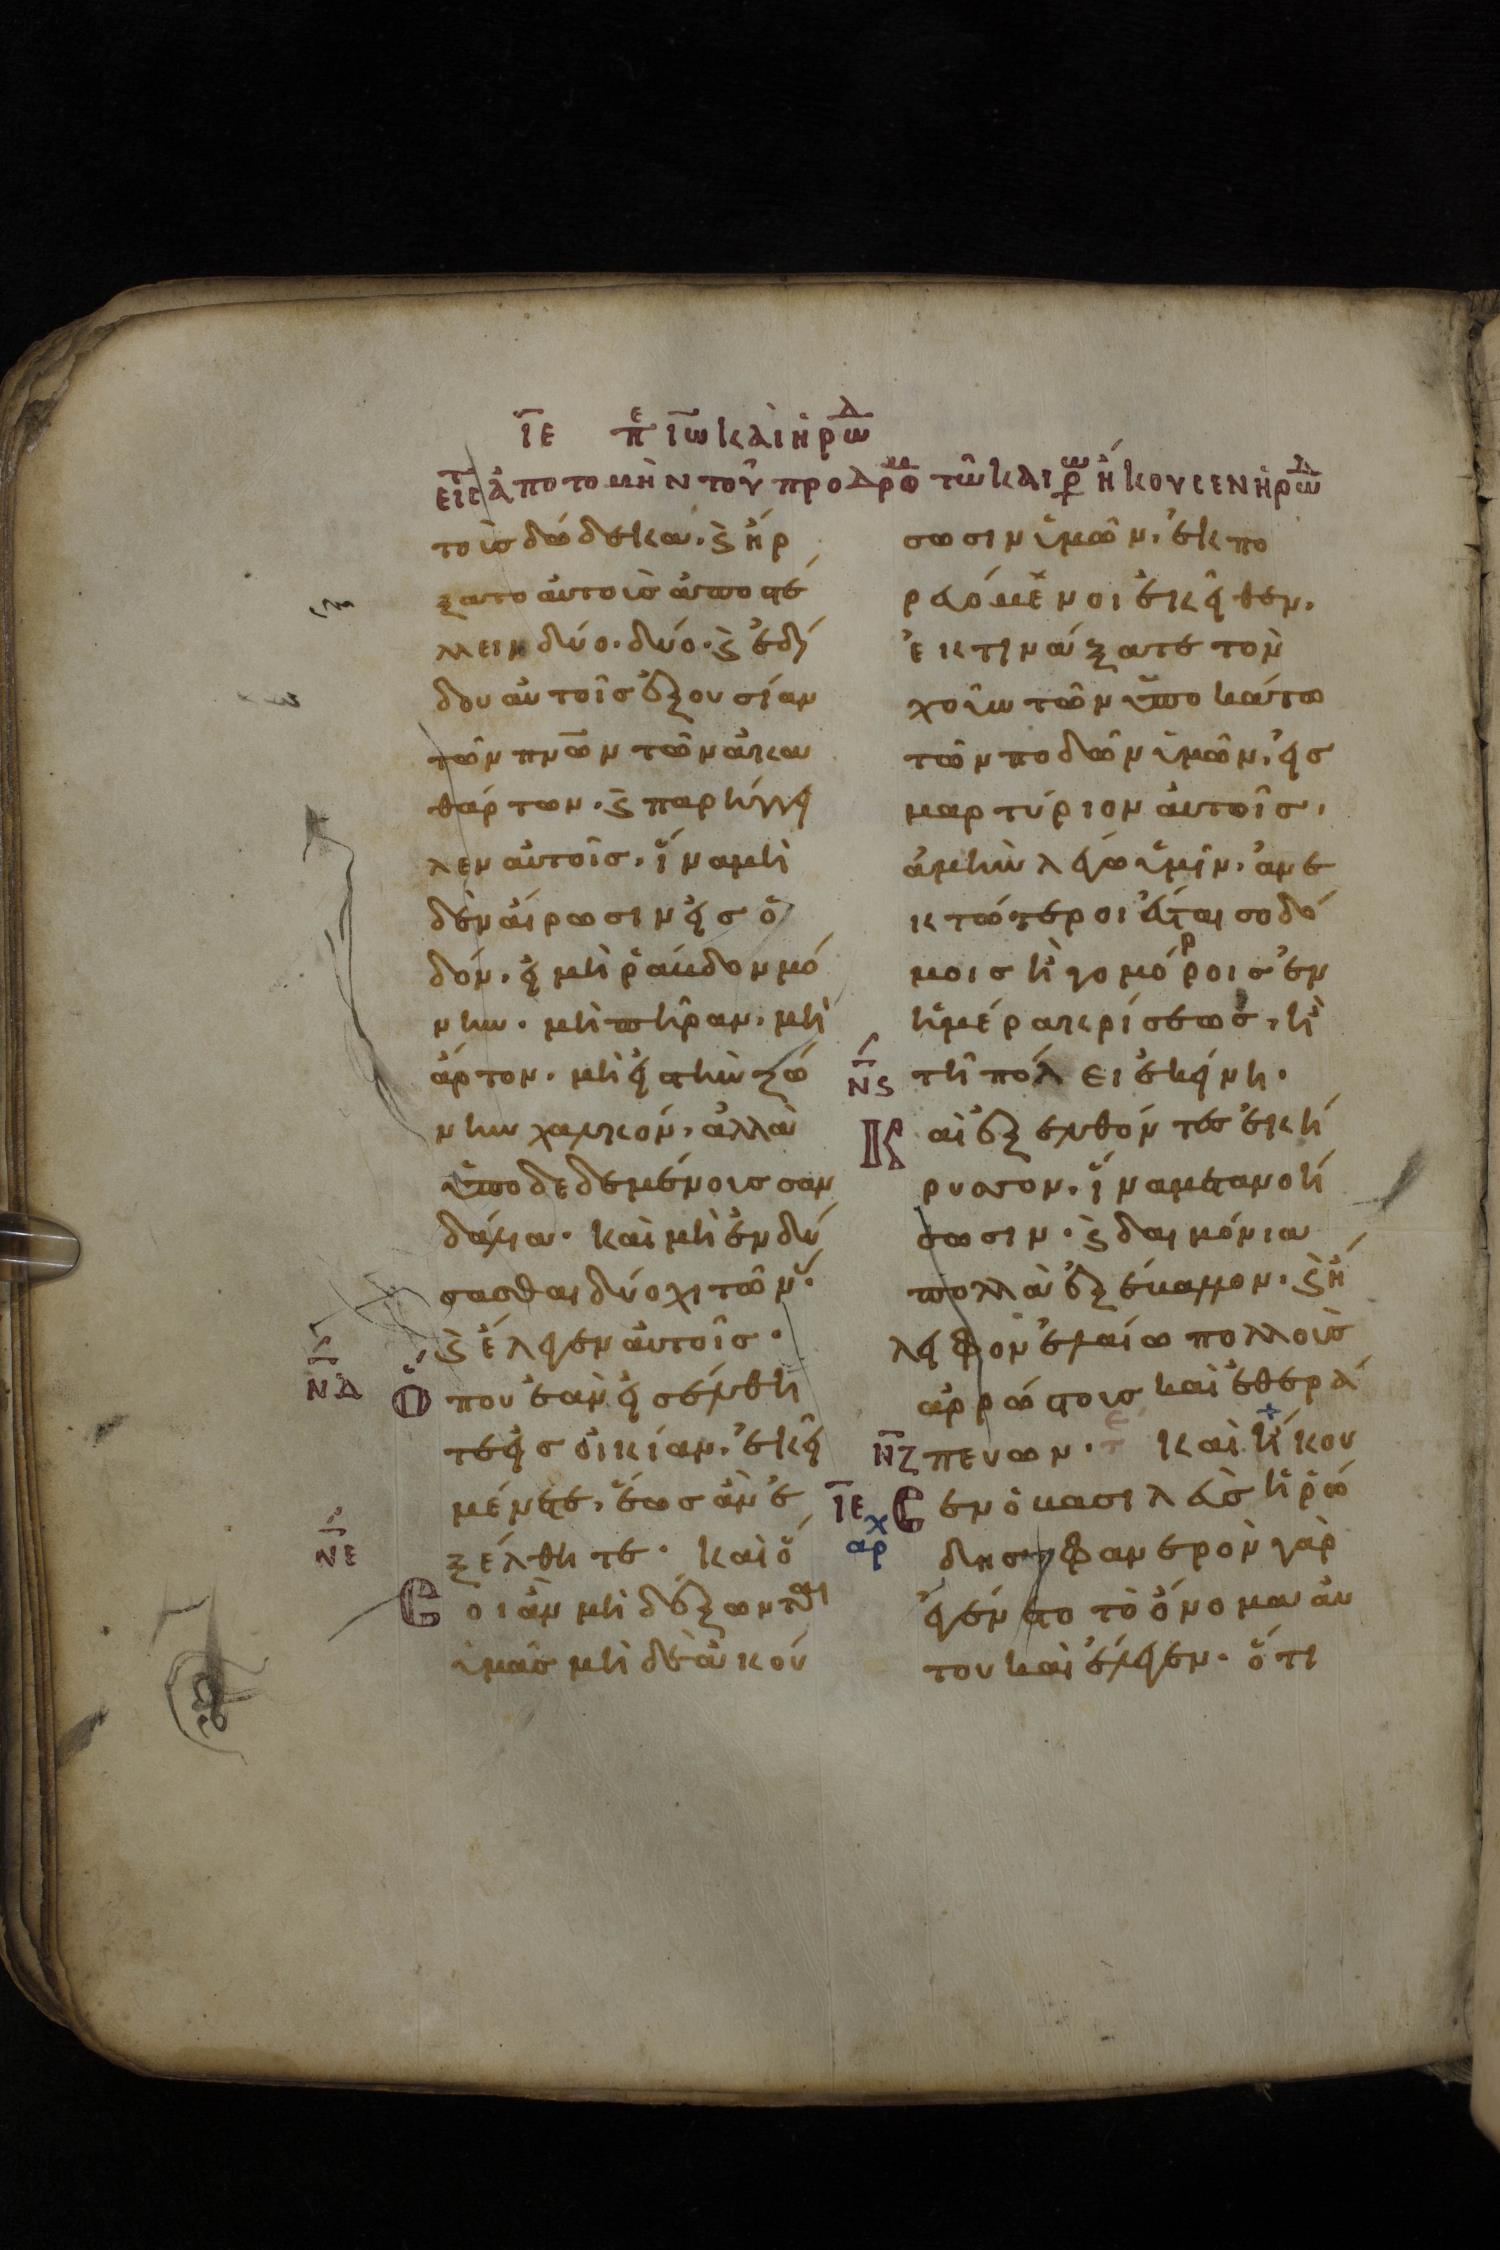 ῑε πε ῑω καὶ ἡρωδ
εἰς τ ἀποτομὴν τοῦ προδρομ τῶ καιρω ἤκουσεν ἡρωδ
τοὺσ δώδεκα. ϗ ἤρ
ξατο αὐτοὺσ ἀποστέ
λλειν δύο. δύο. ϗ ἐδί
δου αὐτοῖσ ἐξουσίαν
τῶν πν̅ων τῶν ἀκα
θάρτων. ϗ παρήγγει
λεν αὐτοῖσ, ἵνα μὴ
δὲν αἴρωσιν εἰσ ὁ
δόν, εἰ μὴ ῥάβδον μό
νην. μὴ πήραν, μὴ
ἄρτον. μὴ εἰσ τὴν ζώ
νην χαλκόν, ἀλλὰ
ὑποδεδεμένους σαν
δάλια. καὶ μὴ ἐνδύ
σασθαι δύο χιτῶν.
ϗ ἔλεγεν αὐτοῖσ.
ΝΔ Ὅ
που ἐὰν εἰσέλθη
τε εἰσ οἰκίαν, ἐκεῖ
μένετε, ἕωσ ἂν ἐ
ΝΕ
ξέλθητε. καὶ ὅ
Ε σοι ἂν μὴ δέξωνται
ὑμᾶσ μὴδὲ ἀκού
σωσιν ὑμῶν, ἐκπο
ρευόμενοι ἐκεῖθεν,
ἐκτινάξατε τὸν
χοῦν τῶν ὑποκάτω
τῶν ποδῶν ὑμῶν, εἰσ
μαρτύριον αὐτοῖσ,
ἀμὴν λέγω ὑμῖν, ἀνε
κτώτεροι ἔσται σοδό
μοισ ἢ γομόρροισ ἐν
ἡμέρα κρίσεωσ, ἢ
ΝϚ
τῆ πόλει ἐκείνη.
Καὶ ἐξελθόντεσ ἐκή
ρυσσον, ἵνα μετανοή
σωσιν. ϗ δαιμόνια
πολλὰ ἐξέβαλλον. ϗ ἤ
λειφον ἐλαίω πολλοὺσ
ἀρρώστουσ καὶ ἐθερά
ΝΖ πευων. τε καὶ ἤκου
ΙΕ Σεν ὁ βασιλεὺσ ἡρώ
αρχ
δησ, φανερὸν γὰρ
ἐγένετο τὸ ὄνομα αὐ
του καὶ ἔλεγεν. ὅτι